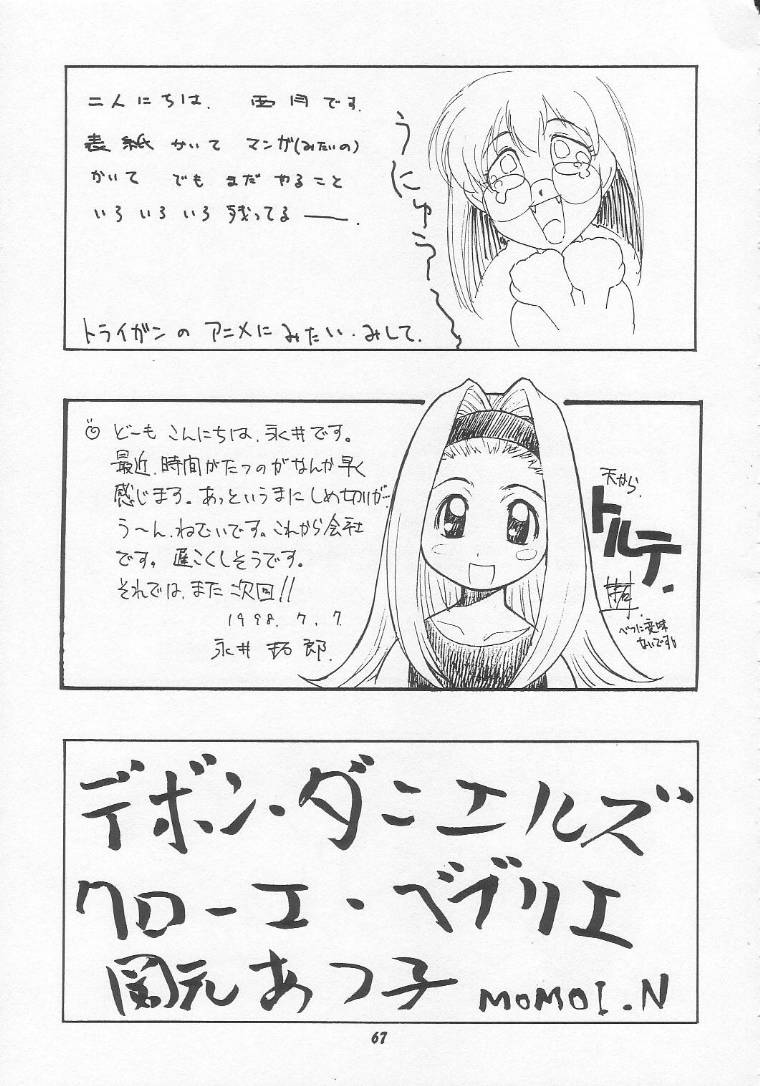 こんにちは、西月です。
表紙かいて マンガ(みたいの)
かいて でも まだ やること
いろ いろ いろ 残ってる――.
うにゅう〜
トライガン の アニメに みたい・みして.
どーも こんにちは、永井です。
最近、時間がたつのがなんか早く
感じます。あっというまにしめ切りが、
う〜ん、ねむいです。これから会社
です。遅こくしそうです。
それでは、また 次回!!
1998. 7. 7
永井 拓郎.
天から
トルテ.
べつに意味
ないです。
デボン・ダニエルズ
クローエ・ベブリエ
関元 あつ子 MOMOI.N
67